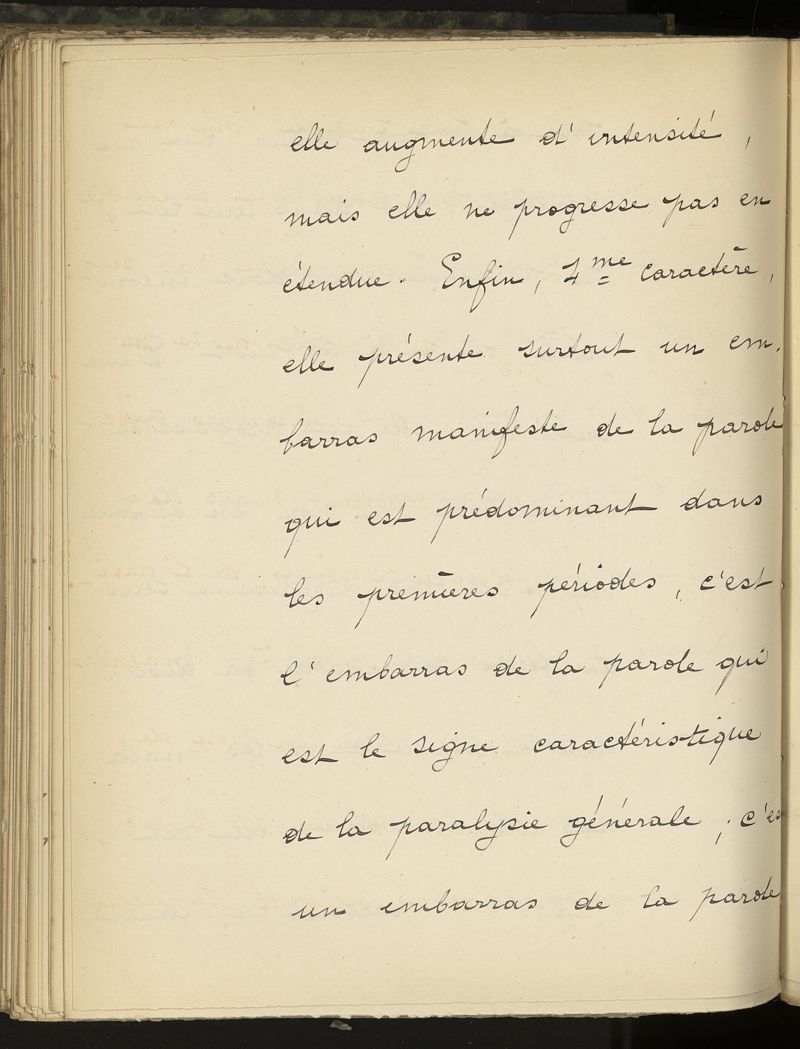 elle augmente d'intensité,
mais elle ne progresse pas en
étendue. Enfin, 4me caractère,
elle présente surtout un em-
barras manifeste de la parole
qui est prédominant dans
les premières périodes, c'est
l'embarras de la parole qui
est le signe caractéristique
de la paralysie générale ; c'es
un embarras de la parole